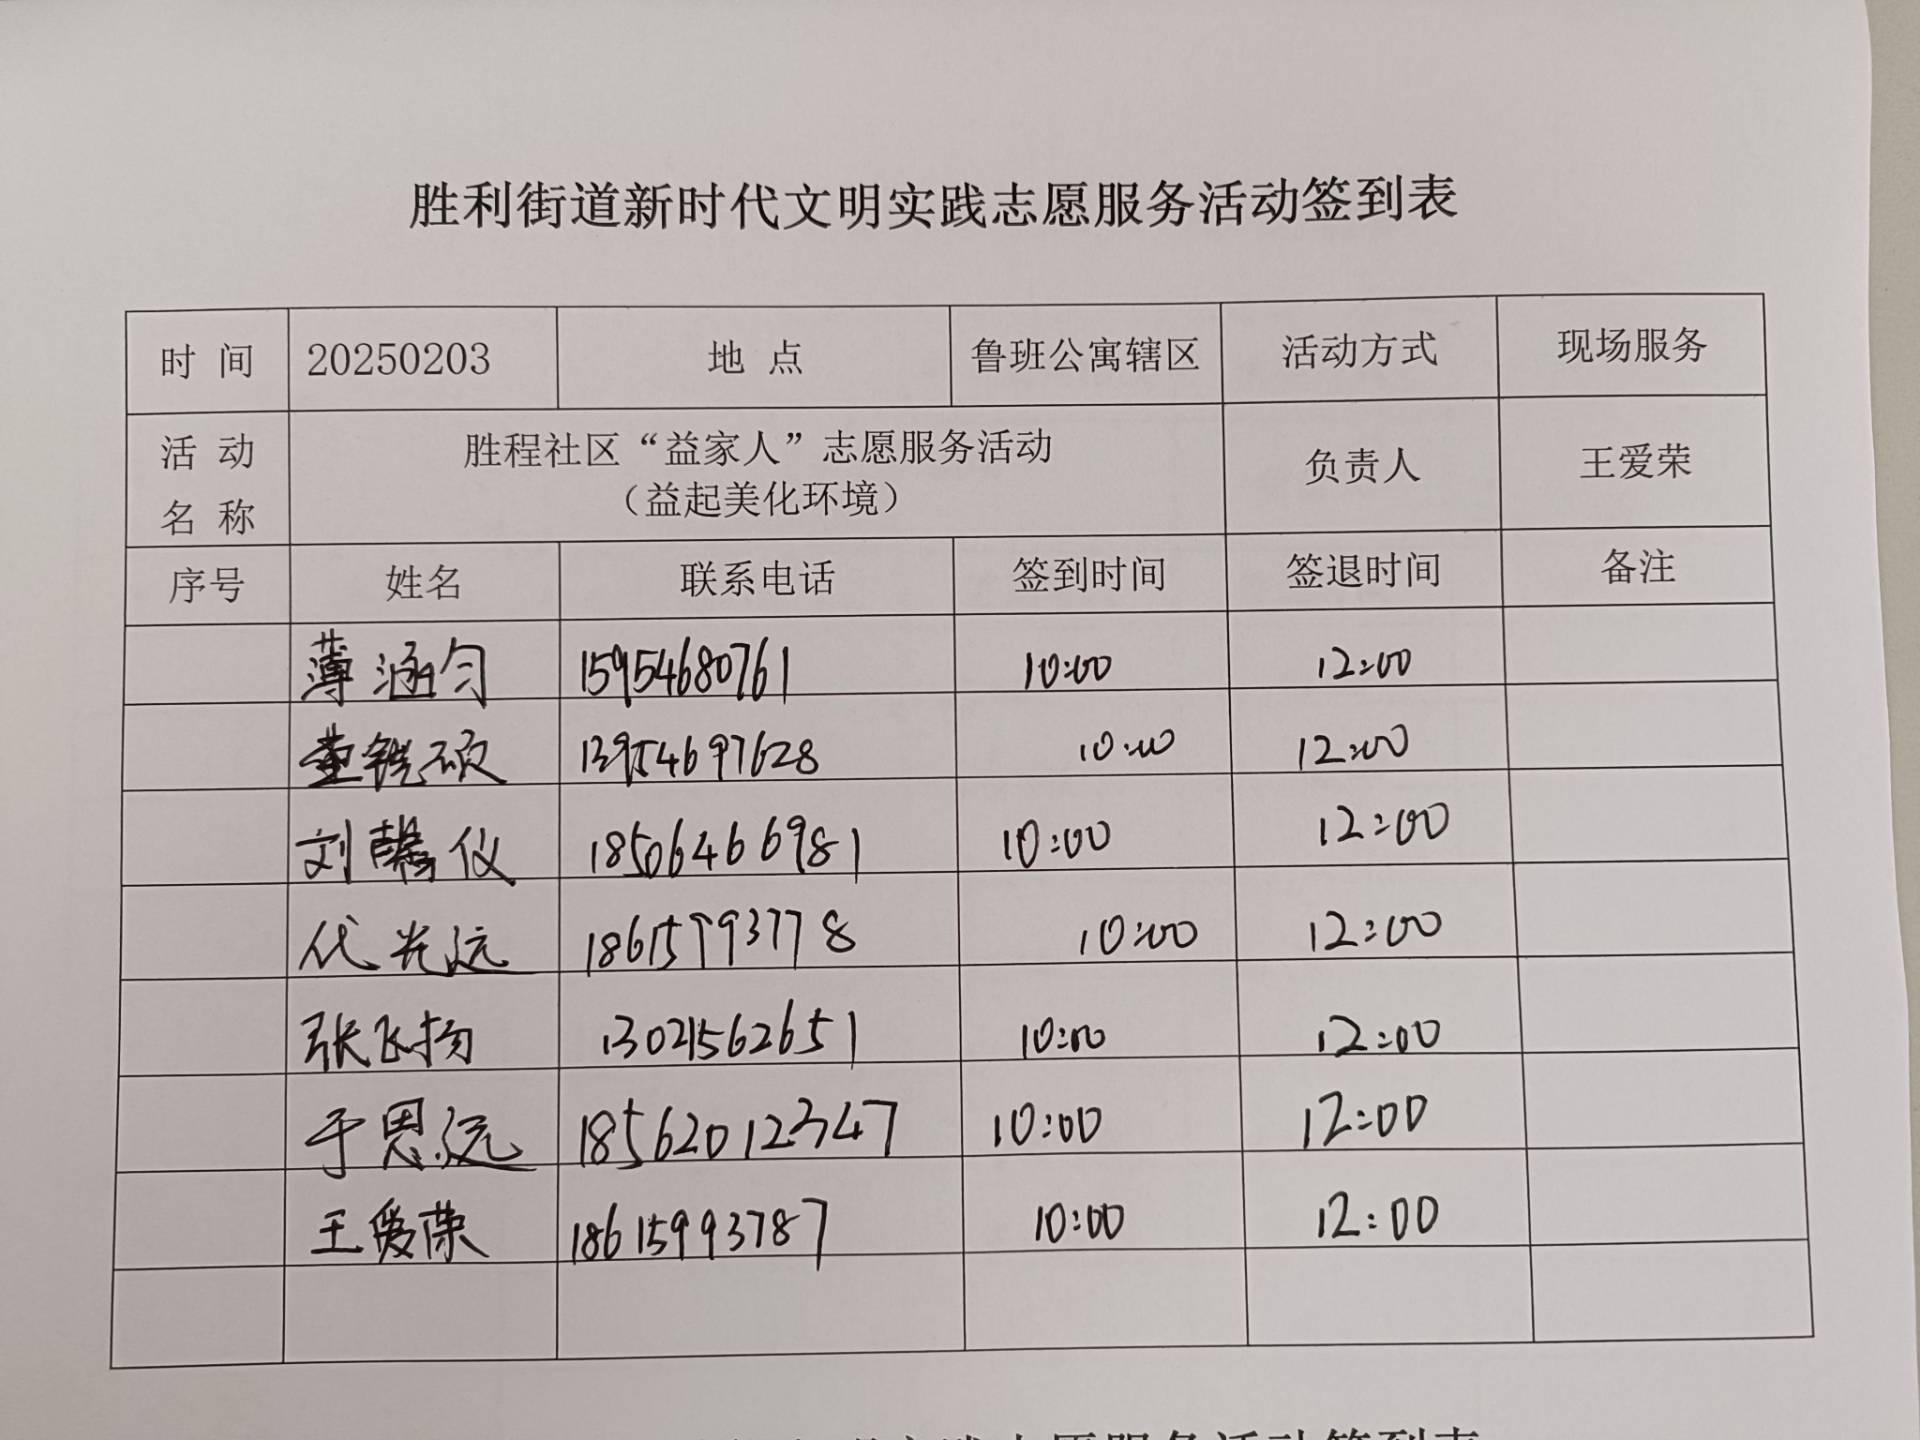 胜利街道新时代文明实践志愿服务活动签到表
时 间 20250203 地 点 鲁班公寓辖区 活动方式 现场服务
活 动 名 称 胜程社区“益家人”志愿服务活动 负责人 王爱荣
（益起美化环境）
序号 姓名 联系电话 签到时间 签退时间 备注
薄涵匀 15954680761 10:00 12:00
董锐硕 13954697628 10:00 12:00
刘馨仪 18506466981 10:00 12:00
代光远 18615993778 10:00 12:00
张飞扬 13021562651 10:00 12:00
于恩远 18562012347 10:00 12:00
王爱荣 18615993787 10:00 12:00